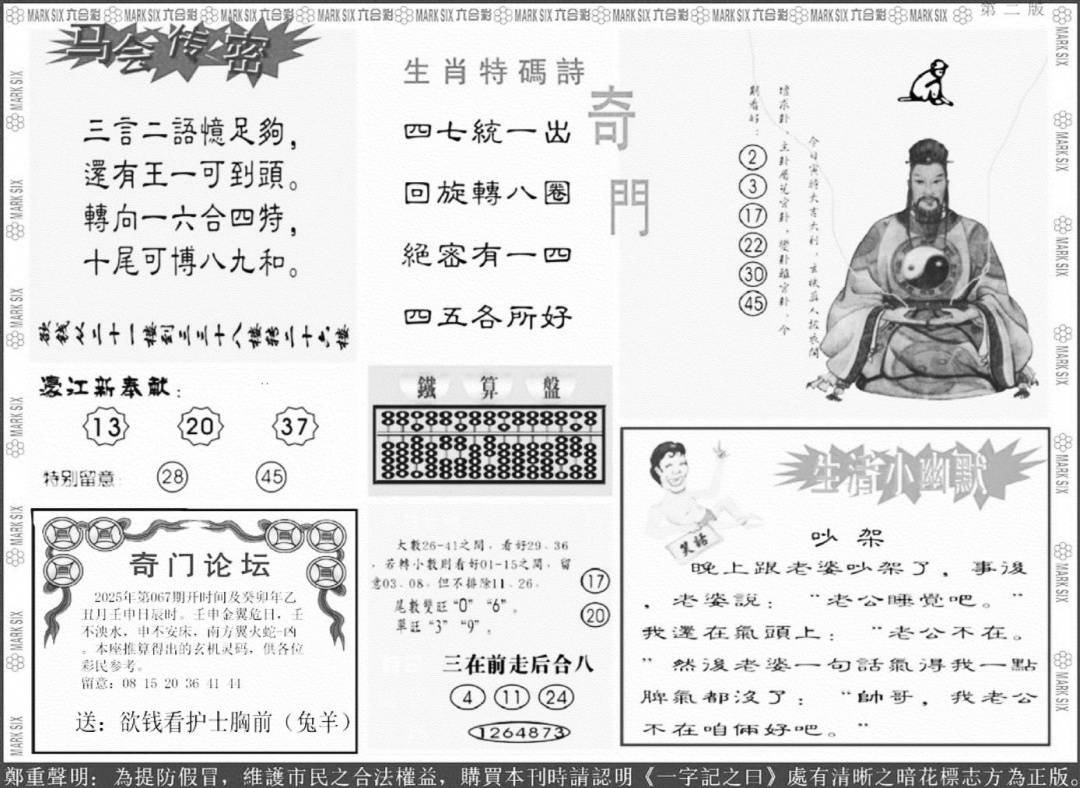 MARK SIX 六合彩 MARK SIX 六合彩 MARK SIX 六合彩 MARK SIX 六合彩 MARK SIX 六合彩 MARK SIX 六合彩 MARK SIX 六合彩 MARK SIX 六合彩 MARK SIX 六合彩 MARK SIX
第二版
马会传密
三言二語憶足夠，
還有王一可到頭。
轉向一六合四特，
十尾可博八九和。
欲钱从二十一樓到三三十八樓转二十六樓
濠江新奉献：
13 20 37
特别留意 28 45
奇门论坛
2025年第067期开时间及癸卯年乙
丑月壬申日辰时。壬申金翼危日，壬
不泱水，申不安床，南方翼火蛇-凶
。本座推算得出的玄机灵码，供各位
彩民参考。
留意：08 15 20 36 41 44
送：欲钱看护士胸前（兔羊）
生肖特碼詩
四七統一出
回旋轉八圈
絕密有一四
四五各所好
鐵算盤
大數26-41之間，看好29、36
，若轉小數則看好01-15之間，留
意03、08，但不排除11、26。
尾數雙旺“0” “6”。
單旺“3” “9”。
17
20
三在前走后合八
4 11 24
1264873
奇門
2
3
17
22
30
45
生活小幽默
笑話
吵架
晚上跟老婆吵架了，事後
，老婆說：“老公睡觉吧。”
我還在氣頭上：“老公不在。
”然後老婆一句話氣得我一點
脾氣都沒了：“帥哥，我老公
不在咱倆好吧。”
鄭重聲明：為提防假冒，維護市民之合法權益，購買本刊時請認明《一字記之曰》處有清晰之暗花標志方為正版。